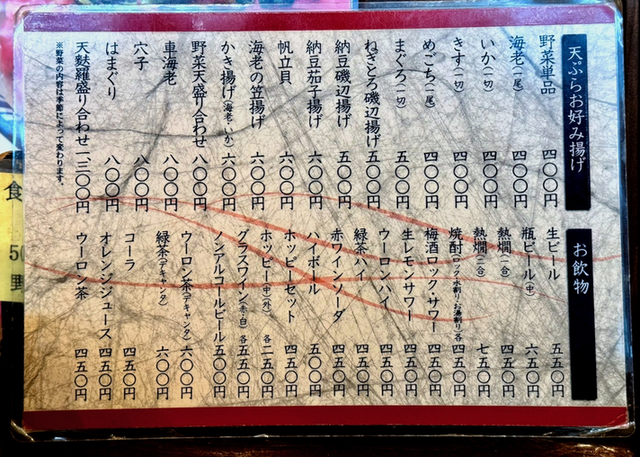 天ぷらお好み揚げ
野菜単品 四〇〇円
海老(一尾) 四〇〇円
いか(一切) 四〇〇円
きす(一切) 四〇〇円
めごち(一尾) 四〇〇円
まぐろ(一切) 五〇〇円
ねぎとろ磯辺揚げ 五〇〇円
納豆磯辺揚げ 五〇〇円
納豆茄子揚げ 六〇〇円
帆立貝 六〇〇円
海老の笠揚げ 六〇〇円
かき揚げ(海老・いか) 六〇〇円
野菜天盛り合わせ 八〇〇円
車海老 八〇〇円
穴子 八〇〇円
はまぐり 八〇〇円
天麩羅盛り合わせ 一二〇〇円
※野菜の内容は季節によって変わります。
お飲物
生ビール 五五〇円
瓶ビール(中) 六五〇円
熱燗(一合) 四五〇円
熱燗(二合) 七五〇円
焼酎(ロック・水割り・お湯割り)各 四五〇円
梅酒ロック・サワー 四五〇円
生レモンサワー 四五〇円
ウーロンハイ 四五〇円
緑茶ハイ 四五〇円
赤ワインソーダ 四五〇円
ハイボール 五〇〇円
ホッピーセット 四五〇円
ホッピー(中)(外) 各二五〇円
グラスワイン(赤・白) 各五五〇円
ノンアルコールビール 五〇〇円
ウーロン茶(デキャンタ) 六〇〇円
緑茶(デキャンタ) 六〇〇円
コーラ 四五〇円
オレンジジュース 四五〇円
ウーロン茶 四五〇円
食
50